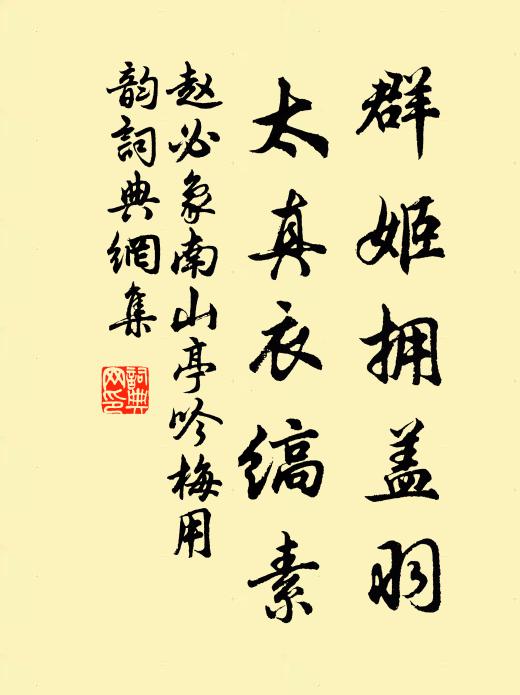 群姬拥盖羽
太真衣缟素
赵必象南山亭吟梅用
韵詞典網集
詞典